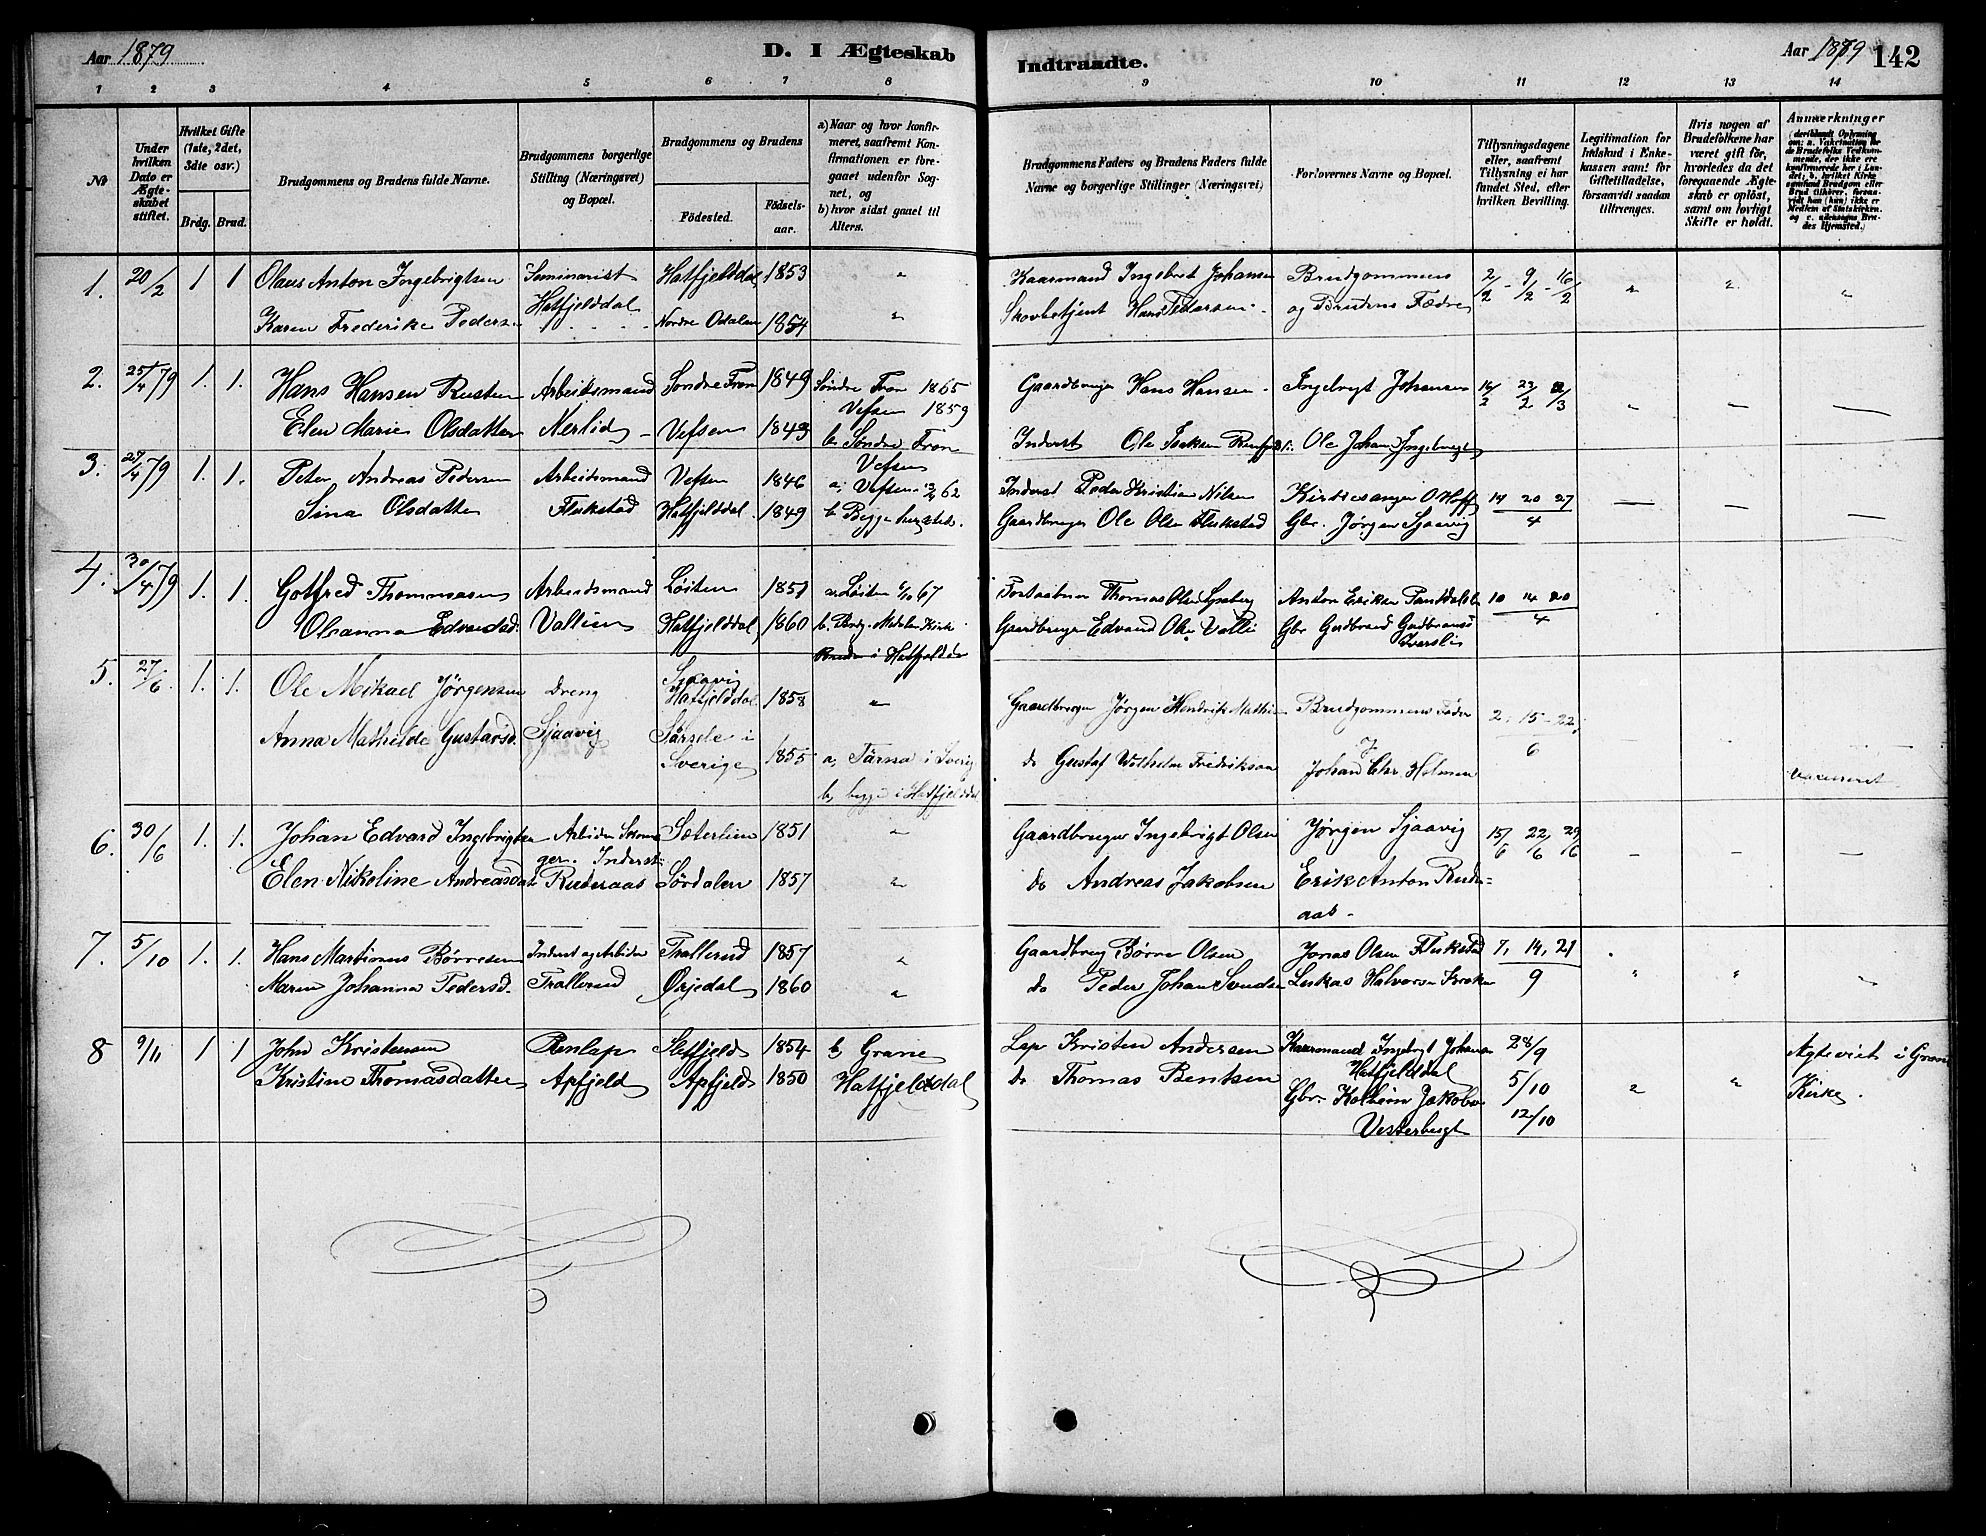 Aar 1879
D. I Ægteskab
Indtraadte.
Aar 1879
142
1 2 3 4 5 6 7 8 9 10 11 12 13 14
No
Under hvilken Dato er Ægteskabet stiftet.
Hvilket Gifte (1ste, 2det, 3die osv.)
Brdg. Brud.
Brudgommens og Brudens fulde Navne.
Brudgommens borgerlige Stilling (Næringsvei) og Bopæl.
Brudgommens og Brudens
Fødested.
Fødselsaar.
a) Naar og hvor konfirmeret, saafremt Konfirmationen er foregaaet udenfor Sognet, og
b) hvor sidst gaaet til Alters.
Brudgommens Faders og Brudens Faders fulde Navne og borgerlige Stillinger (Næringsvei)
Forlovernes Navne og Bopæl.
Tillysningsdagene eller, saafremt Tillysning ei har fundet Sted, efter hvilken Bevilling.
Legitimation for Indskud i Enkekassen samt for Giftetilladelse, forsaavidt saadan tiltrænges.
Hvis nogen af Brudefolkene har været gift før, hvorledes da det foregaaende Ægteskab er opløst, samt om lovligt Skifte er holdt.
Anmærkninger
1. 20/2 1 1 Olaus Anton Ingebrigtsen Seminarist Hatfjelddal 1853 " Kaarmand Ingebret Johansen Brudgommens 2/2 - 9/2 - 16/2 " " "
Karen Frederike Peders Hatfjelddal Nordre Odalen 1854 " Skovbetjent Hans Pedersen og Brudens Fædre
2. 25/4 79 1. 1. Hans Hansen Rusten Arbeidsmand Søndre Fron 1849 Søndre Fron 1865 Gaardbruger Hans Hansen Ingebrigt Johansen 16/2 23/2 2/3 — — —
Vefsen 1859
Elen Marie Olsdatter Nerlid Vefsen 1843 b. Søndre Fron Inderst Ole Isaksen Ole Johan Ingebrigt
Vefsen
3. 27/4 79 1. 1. Peter Andreas Pedersen Arbeidsmand Vefsen 1846 a; Vefsen 62 Inderst Peder Kristian Nilsen Kirkesanger O Hoff 14 20 27 — — —
Sina Olsdatter Flukstad Hatfjelddal 1849 b Begge hersteds. Gaardbruger Ole Olsen Flukstad Gbr. Jørgen Sjaavig 4
4. 30/4 79 1. 1. Gotfred Thommasen Arbeidsmand Løiten 1851 a Løiten 67 Thomas Olsen Anton Eriksen 10 14 20
Olianna Edvardsd. Vallien Hatfjelddal 1860 b. Brdg. Kirke Gaardbruger Edvard Olsen Valli Gbr Gudbrand 4
Bruden i Hatfjelddal
5. 27/6 1. 1. Ole Mikael Jørgensen Dreng Sjaavig Hatfjelddal 1858 " Gaardbruger Jørgen Hendrik Mathi Brudgommens Fader 2. 15 - 22
Anna Mathilde Gustavsd. Sjaavig Särsele i Sverige 1855 a, Tärna i Sverig do Gustaf Wilhelm Fredriksen Johan Chr Holmen 6
b, begge i Hatfjelddal vacineret
6. 30/6 1. 1. Johan Edvard Ingebrigtsen Arbider Skomager. Inderst Sæterlien 1851 " Gaardbruger Ingebrigt Olsen Jørgen Sjaavig 15/6 22/6 29/6 — — —
Elen Nikoline Andreasdat Ruderaas Sørdalen 1857 " do Andreas Jakobsen Erik Anton Ruderaas
7. 5/10 1. 1. Hans Martinus Børresen Inderst og Arbider Trallerud 1857 " Gaardbrug Børre Olsen Jonas Olsen Flukstad 7, 14, 21 " " "
Maren Johanna Pedersd. Trallerud Ørjedal 1860 " do Peder Johan Svends Luskas Halvorsen Kroken 9
8 9/11 1 1 John Kristensen Renlap 1854 b, Grane Lap Kristen Andersen Kaarmand Ingebrigt Johansen 28/9 " "
Kristine Thomasdatter Apfjeld Apfjeld 1850 Hatfjelddal do Thomas Bentsen Hatfjelddal 5/10 Ægteviet i Grane
Gbr. Jakobs 12/10 Kirke.
Vesterbugt